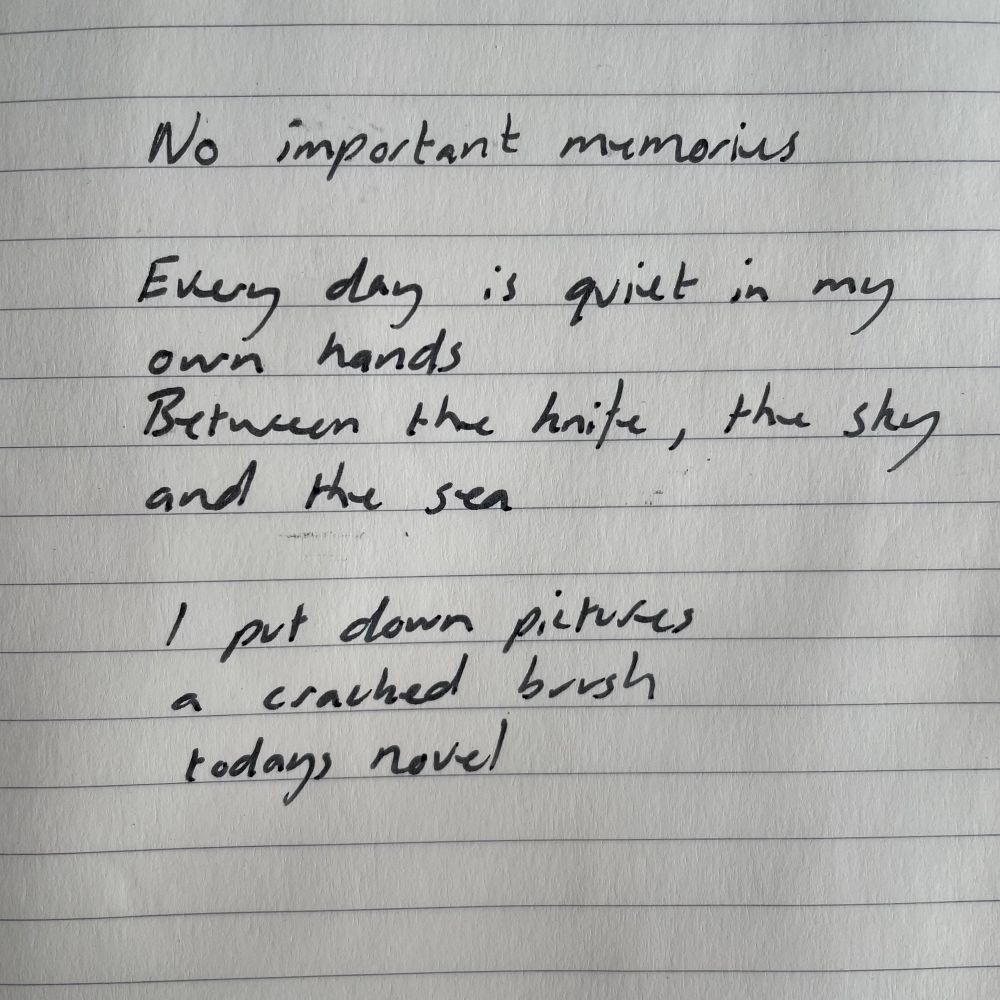 No important memories
Every day is quiet in my
own hands
Between the knife, the sky
and the sea
I put down pictures
a cracked brush
todays novel